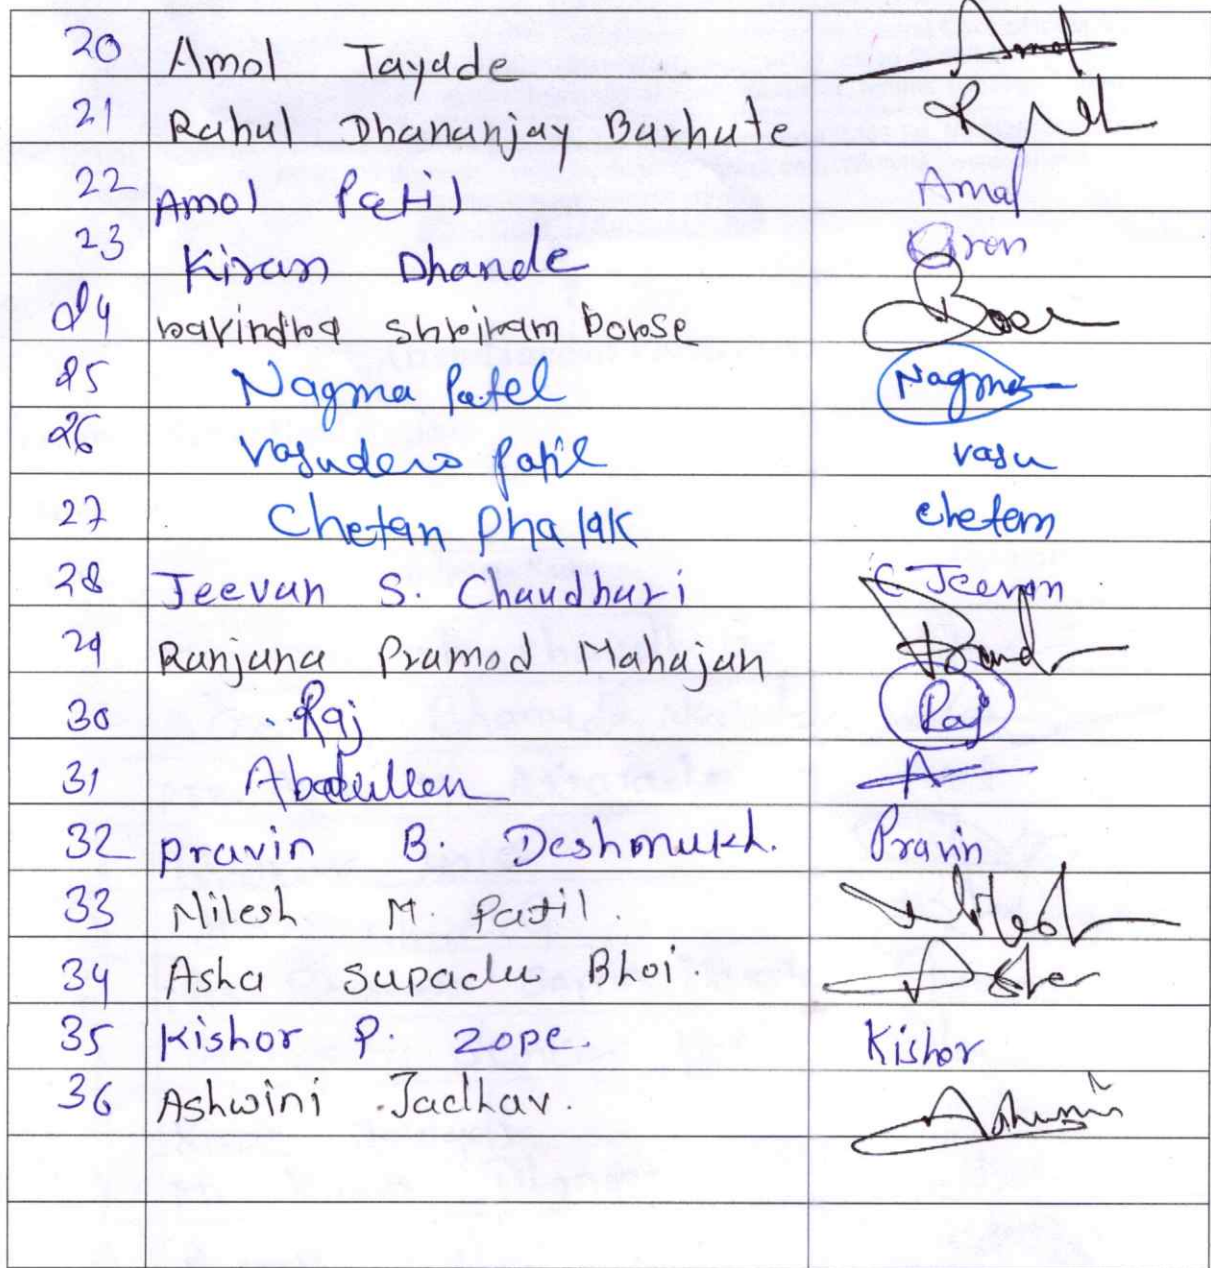 20 Amol Tayade Amol
21 Rahul Dhananjay Barhate
22 Amol Patil Amol
23 Kiran Dhande Kiran
24 Ravindra Shriram Borse
25 Nagma Patel Nagma
26 Vasudev Patil vasu
27 Chetan Phalak chetan
28 Jeevan S. Chaudhari Jeevan
29 Ranjana Pramod Mahajan
30 Raj Raj
31 Abdullah A
32 pravin B. Deshmukh. Pravin
33 Nilesh M. Patil. Nilesh
34 Asha Supadu Bhoi. Asha
35 Kishor P. Zope. Kishor
36 Ashwini Jadhav. Ashwini